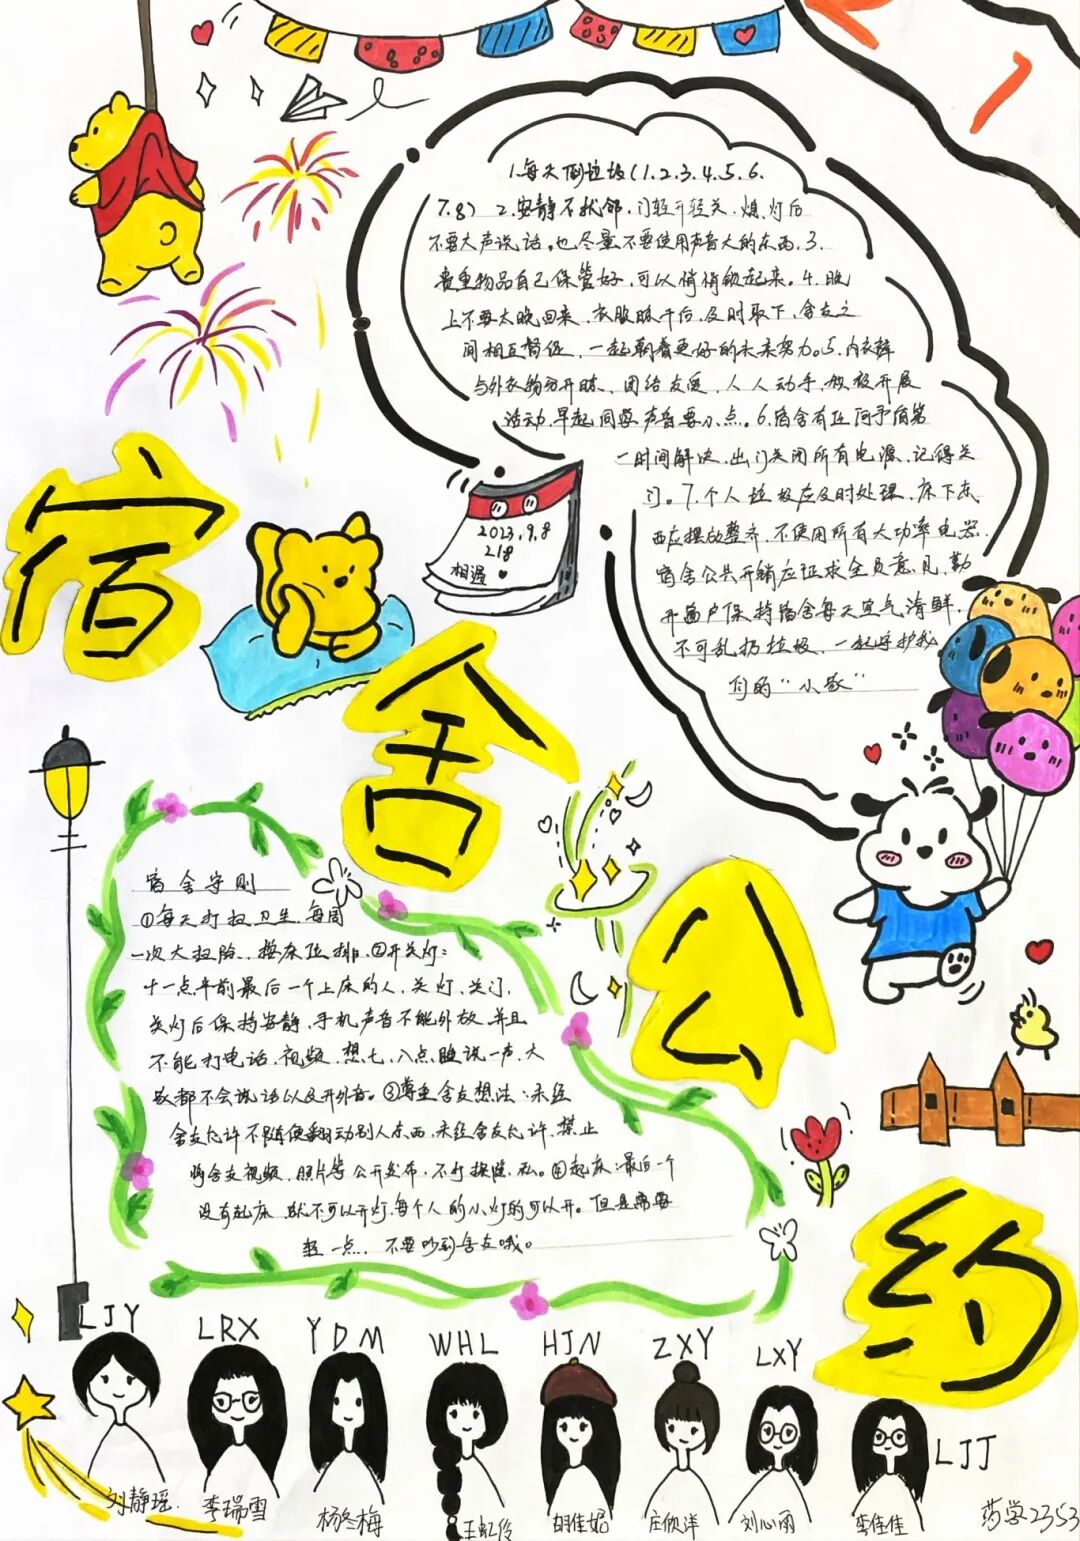 1.每天倒垃圾(1.2.3.4.5.6.
7.8) 2.安静不扰邻,门轻开轻关.熄灯后
不要大声说话。也尽量不要使用声音大的东西.3.
贵重物品自己保管好,可以悄悄锁起来。4.晚
上不要太晚回来,衣服晾干后,及时取下,舍友之
间相互督促,一起朝着更好的未来努力。5.内衣裤
与外衣物分开晾,团结友爱,人人动手,积极开展
活动,早起回寝声音要小点。6.宿舍有任何矛盾第
一时间解决,出门关闭所有电源,记得关
门。7.个人垃圾应及时处理,床下东
西应摆放整齐,不使用所有大功率电器.
宿舍公共开销应征求全员意见,勤
开窗户保持宿舍每天空气清鲜,
不可乱扔垃圾,一起守护我
们的“小家”
2023.9.8
218
相遇
宿舍公约
宿舍守则
①每天打扫卫生,每周
一次大扫除,按床位排.②开关灯:
十一点半前最后一个上床的人,关灯,关门,
关灯后保持安静,手机声音不能外放,并且
不能打电话,视频,想七、八点睡说一声,大
家都不会说话以及开外音。③尊重舍友想法:未经
舍友允许不随便翻动别人东西,未经舍友允许,禁止
将舍友视频,照片等公开发布,不打探隐私。④起床:最后一个
没有起床,就不可以开灯,每个人的小灯的可以开。但是需要
轻一点...不要吵到舍友哦。
LJY LRX YDM WHL HJN ZXY LXY LJJ
刘静瑶 李瑞雪 杨冬梅 王虹伶 胡佳妮 庄欣洋 刘心雨 李佳佳
药学2353